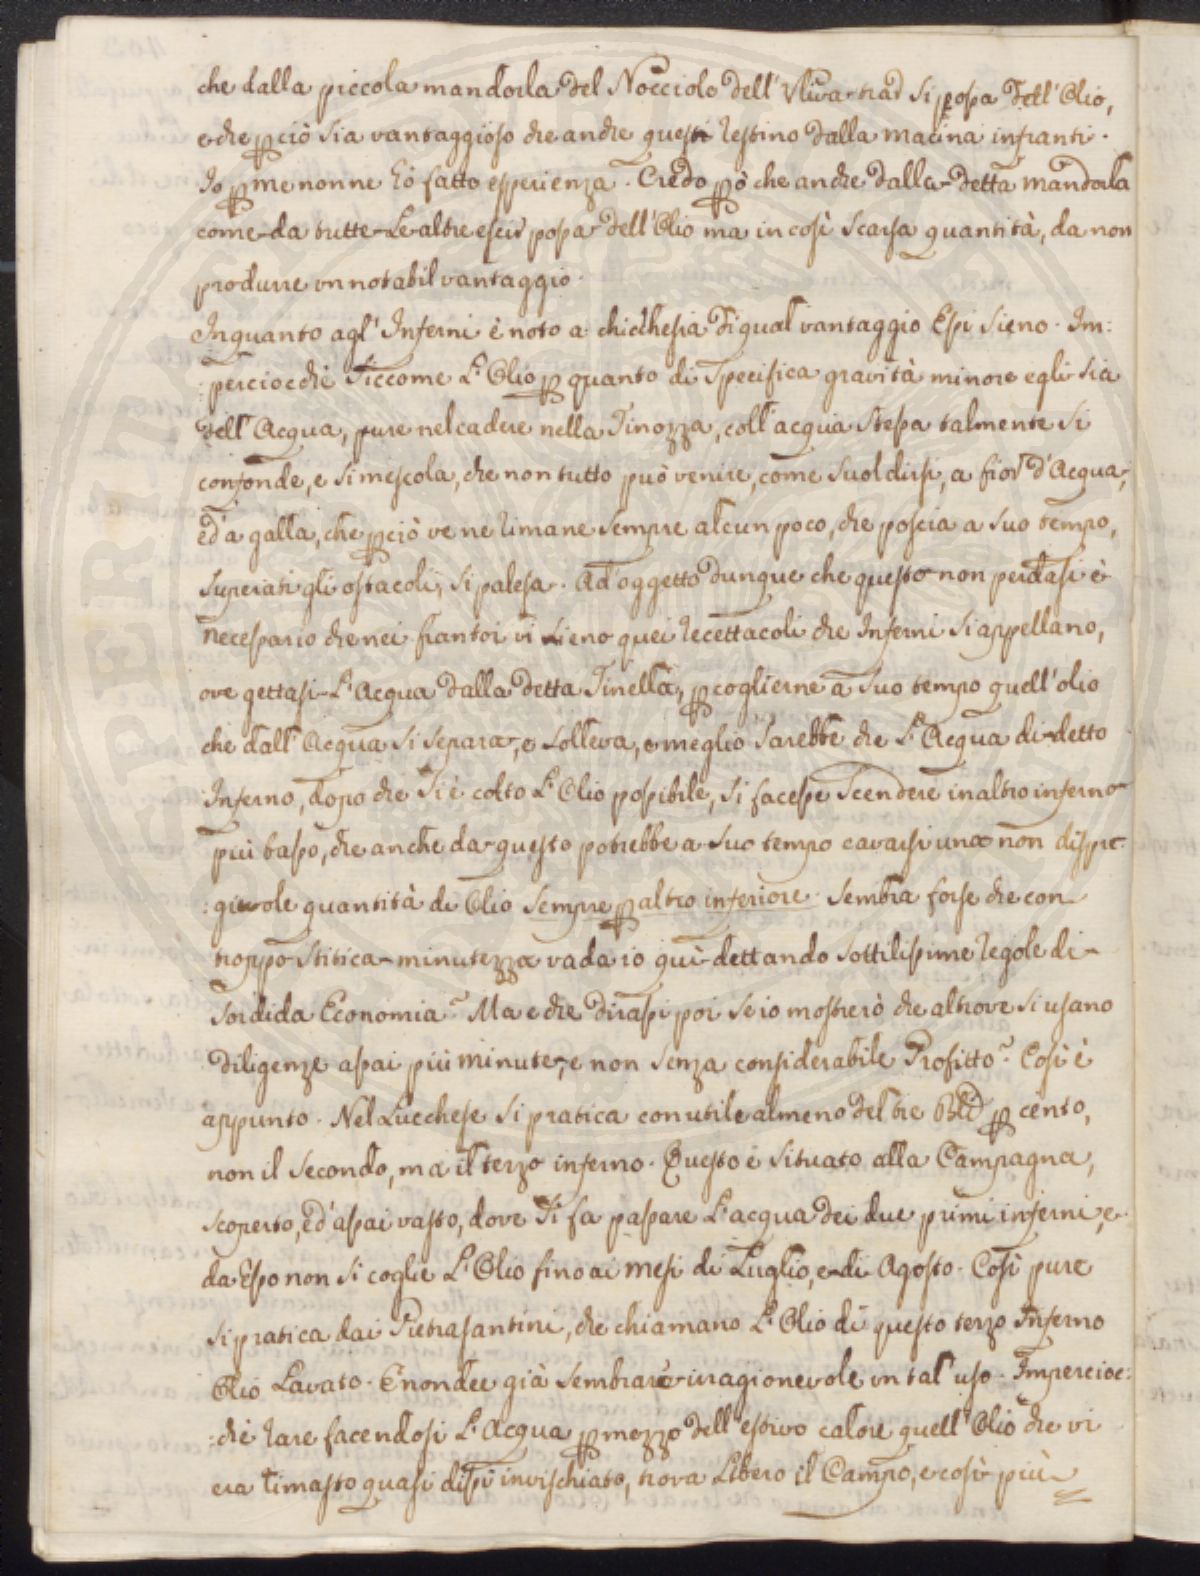 che dalla piccola mandorla del Nocciolo dell' Vliva trar si possa dell' Olio,
e che perciò sia vantaggioso che anche questi restino dalla macina infranti.
Io per me non ne hò fatto esperienza. Credo però che anche dalla detta mandorla
come da tutte le altre escir possa dell' Olio ma in così scarsa quantità, da non
produrre un notabil vantaggio.
In quanto agl' Inferni è noto a chicchesia di qual vantaggio Essi sieno. Im:
:perciocchè siccome L' Olio per quanto di specifica gravità minore egli sia
dell' Acqua, pure nel cadere nella Tinozza, coll' acqua stessa talmente si
confonde, e si mescola, che non tutto può venire, come suol dirsi, a fior d' Acqua,
ed a galla, che perciò ve ne rimane sempre alcun poco, che poscia a suo tempo,
superati gli ostacoli, si palesa. Ad oggetto dunque che questo non perdasi è
necessario che nei frantoi vi sieno quei recettacoli che Inferni si appellano,
ove gettasi L' Acqua dalla detta Tinella, per coglierne a suo tempo quell' olio
che dall' Acqua si separa, e solleva, e meglio sarebbe che L' Acqua di detto
Inferno, dopo che si è colto L' Olio possibile, si facesse scendere in altro inferno
più basso, che anche da questo potrebbe a suo tempo cavarsi una non dispre:
:gievole quantità di Olio sempre per altro inferiore. Sembra forse che con
troppo stitica minutezza vada io quì dettando sottilissime regole di
sordida Economia? Ma e che dirassi poi se io mostrerò che altrove si usano
diligenze assai più minute, e non senza considerabile Profitto? Così è
appunto. Nel Lucchese si pratica con utile almeno del tre per cento,
non il secondo, ma il terzo inferno. Questo è situato alla Campagna,
scoperto, ed assai vasto, dove si fa passare L' acqua dei due primi inferni, e
da Esso non si coglie L' Olio fino ai mesi di Luglio, e di Agosto. Così pure
si pratica dai Pietrasantini, che chiamano L' Olio di questo terzo Inferno
Olio Lavato. E non dee già sembrare irragionevole un tal uso. Impercioc:
:chè rare facendosi L' Acqua per mezzo dell' estivo calore quell' Olio che vi
era rimasto quasi dissi invischiato, trova Libero il Campo, e così più